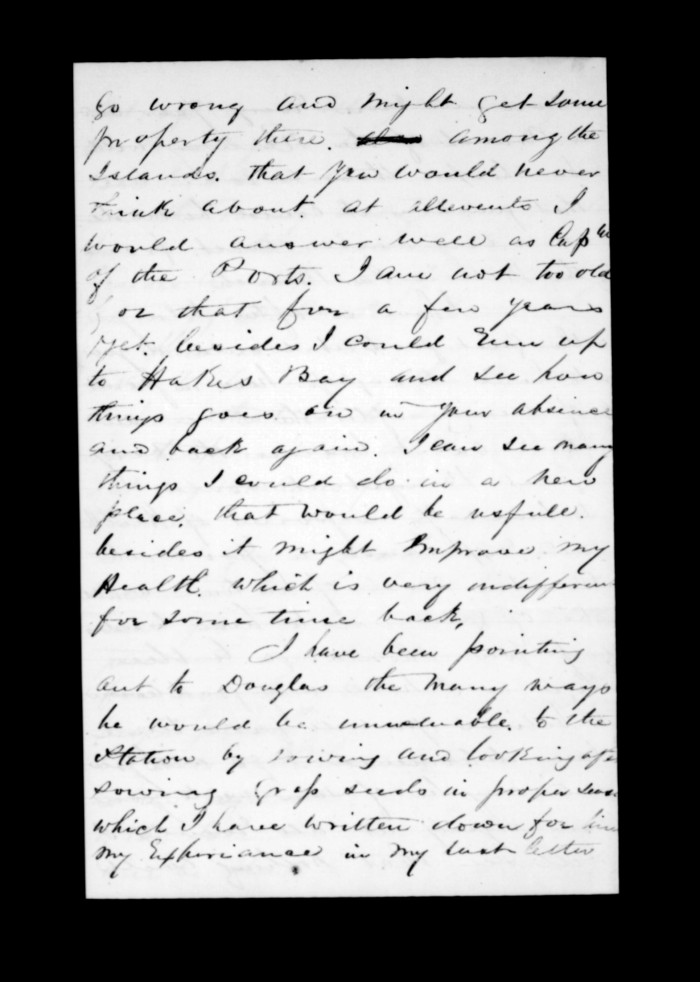 go wrong and might get some
property there. among the
Islands. that you would never
think about. at allevents I
would answer well as Captn
of the Ports. I am not too old
for that for a few years
yet. besides I could run up
to Hakes Bay and see how
things goes on in your absence
and back again. I can see many
things I could do in a new
place. that would be usfull.
besides it might Improve my
Health. which is very indifferent
for some time back,
I have been pointing
out to Douglas the many ways
he would be to the
Station by sowing and looking after
sowing Grass seeds in proper season
which I have written down for him
My Experiance in my last letter